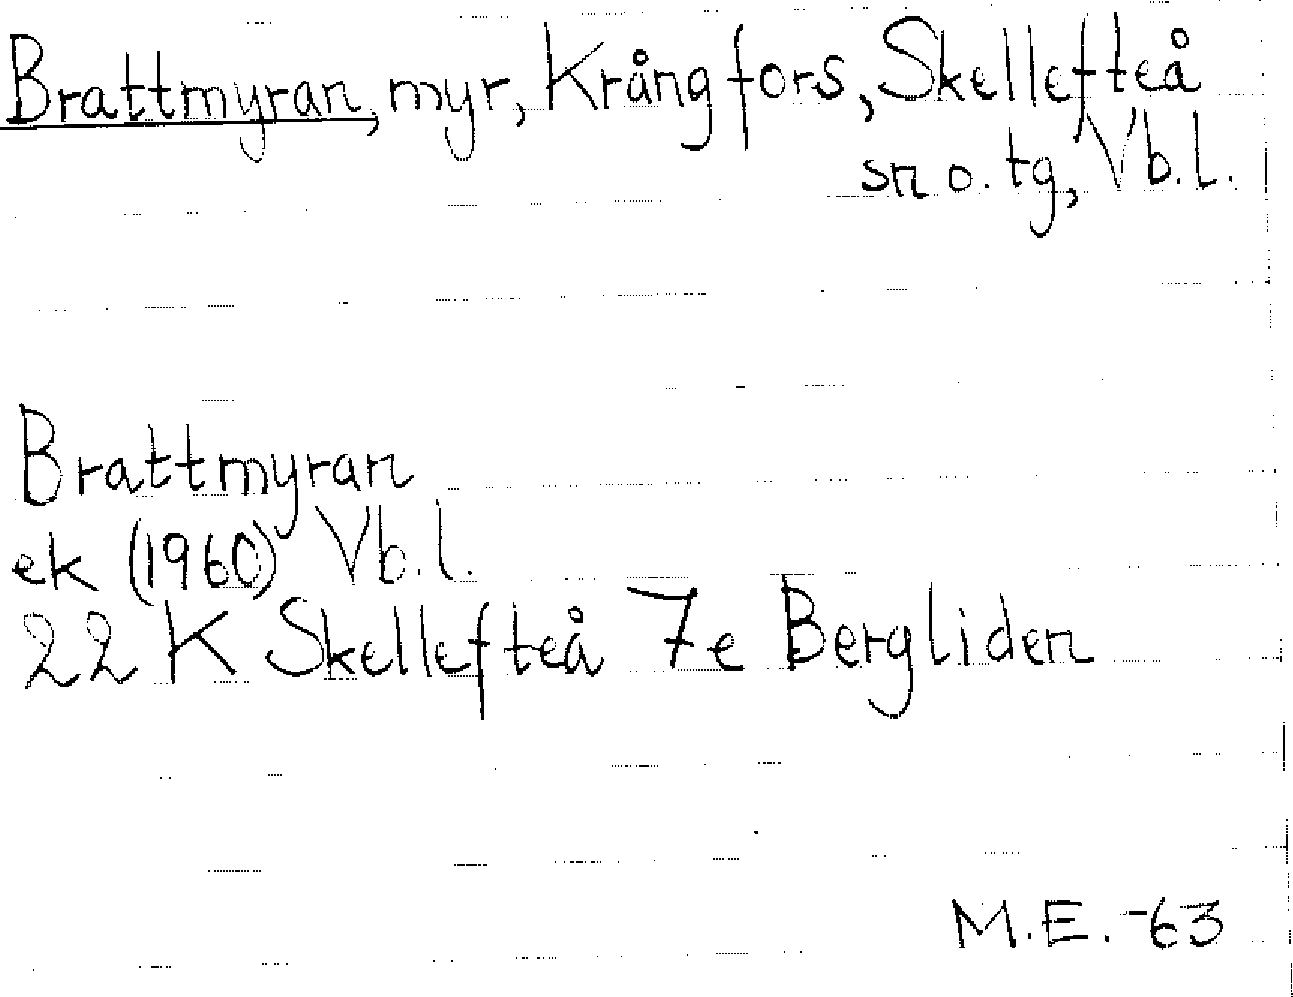 Brattmyran, myr, Krångfors, Skellefteå
sn o. tg, Vb.l.
Brattmyran
ek (1960) Vb.l.
22 K Skellefteå 7e Bergliden
M.E. -63